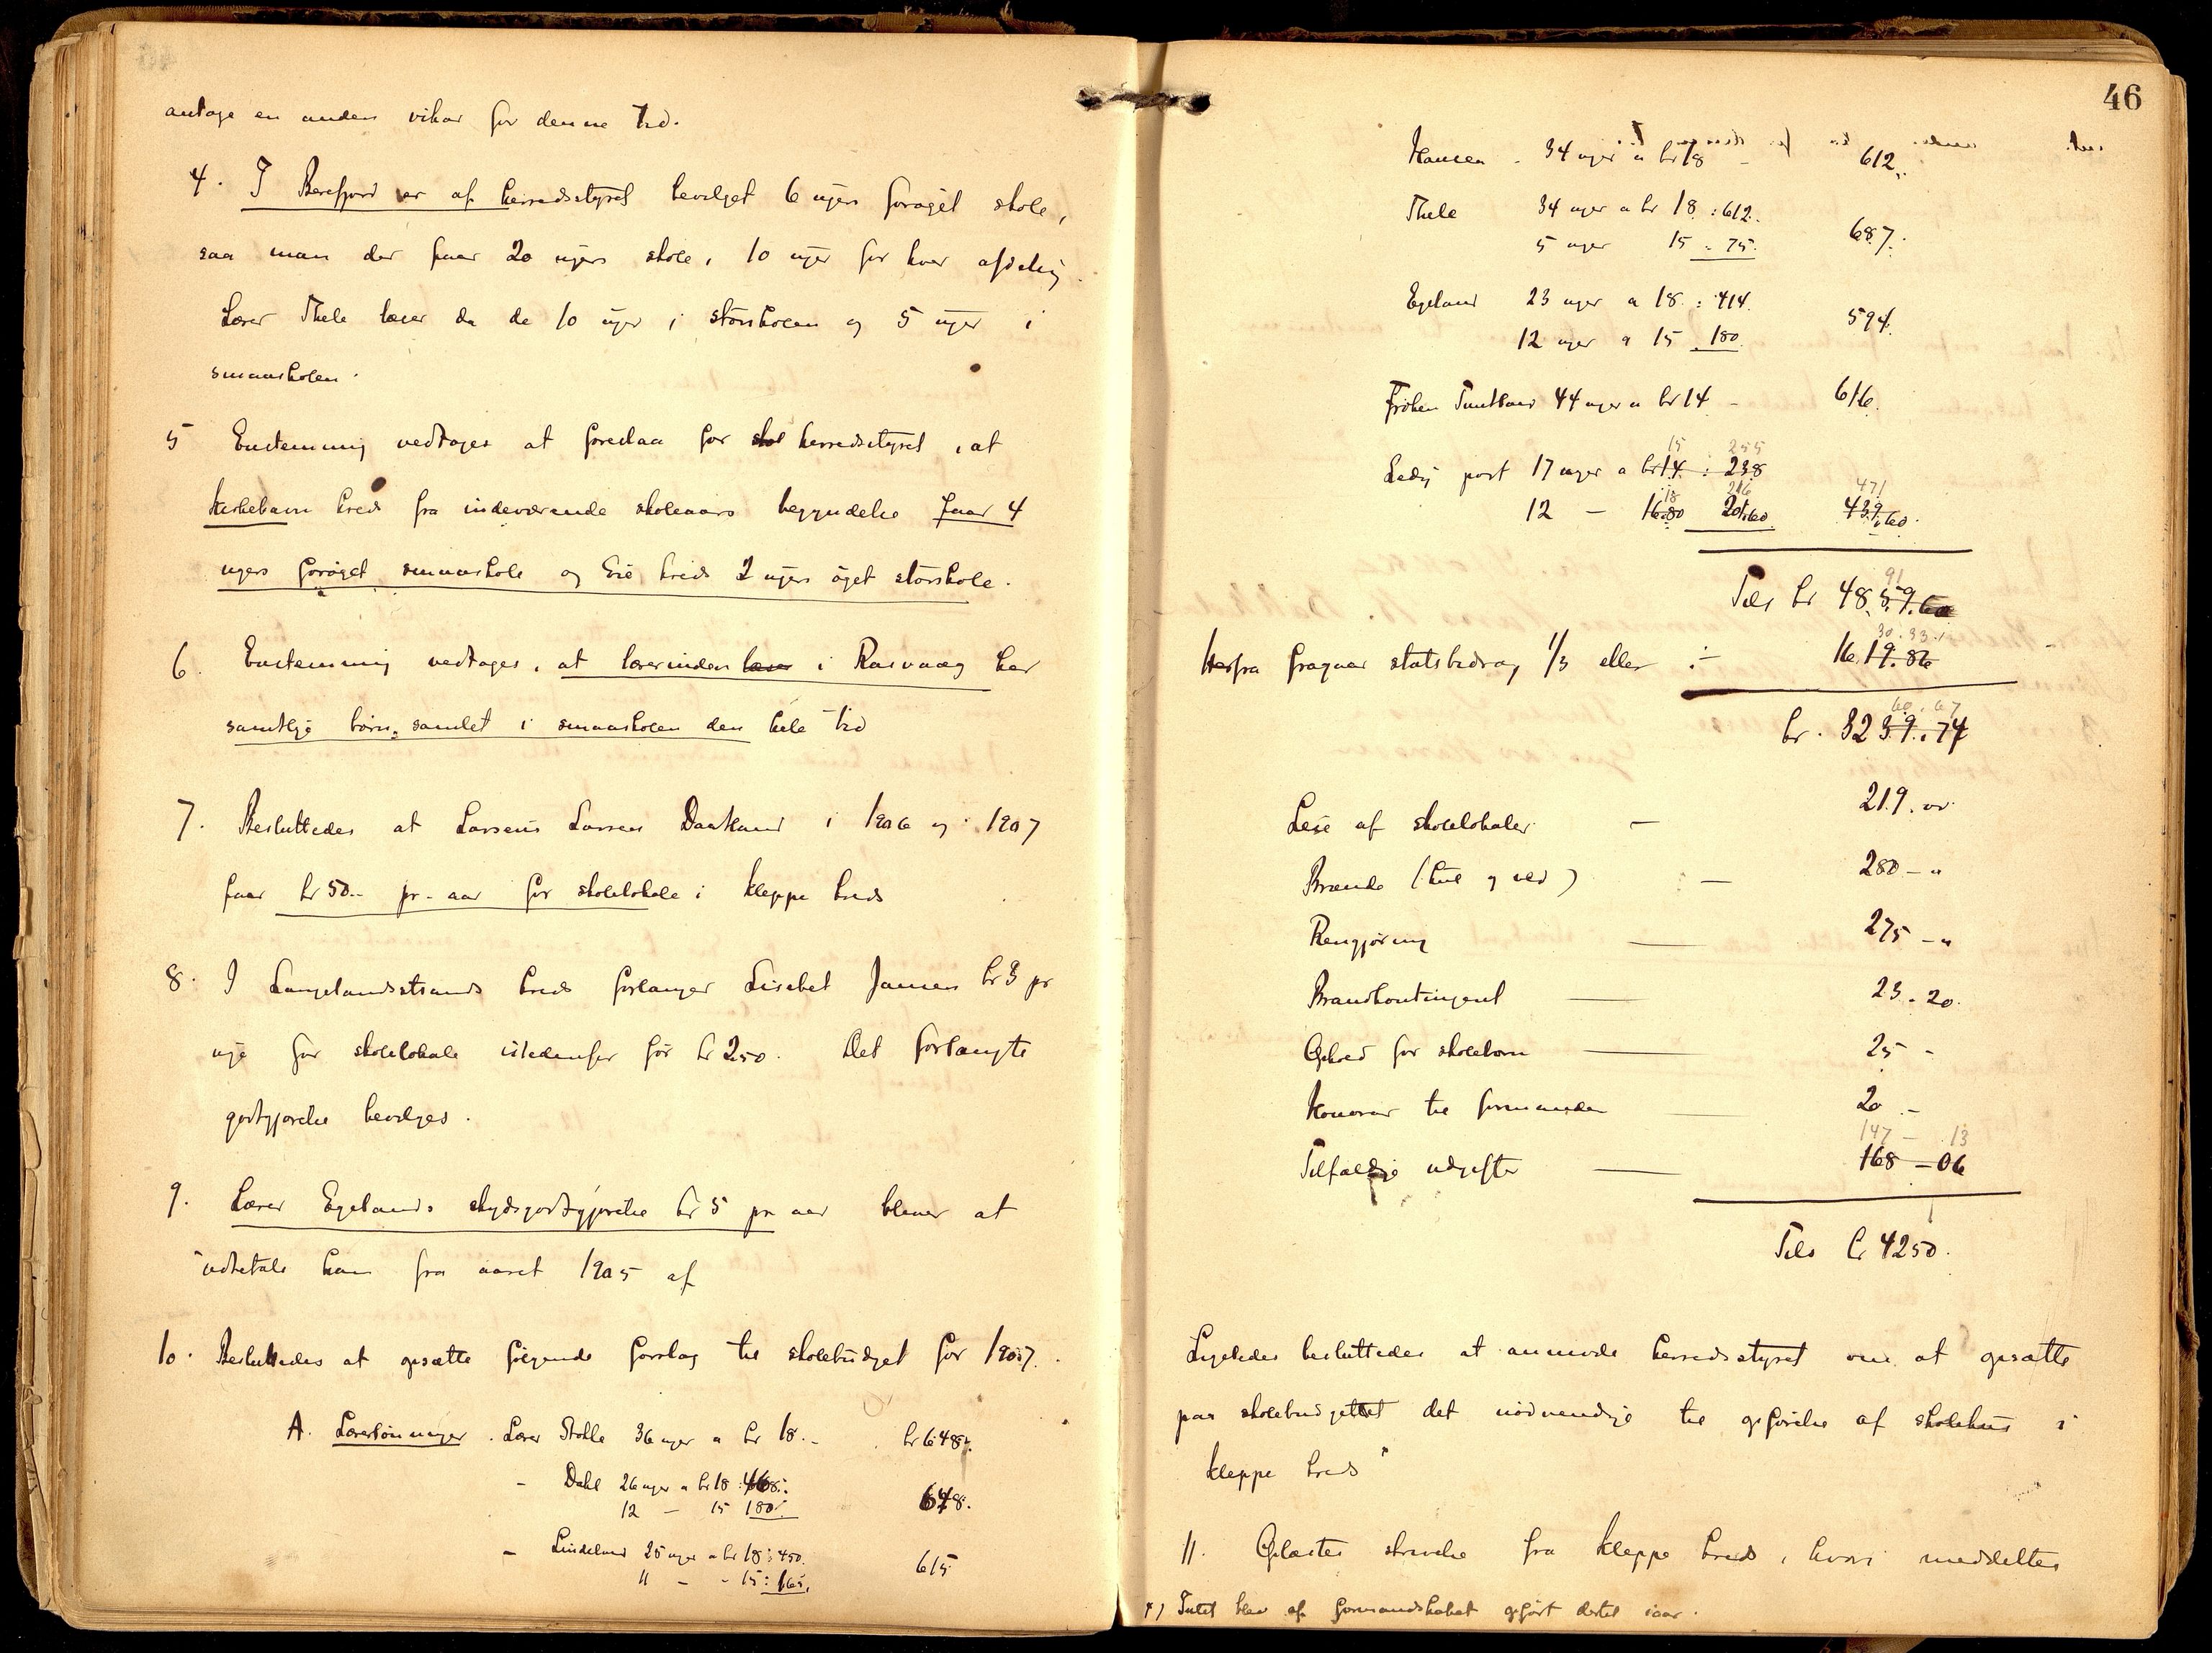 antage en anden vikar for denne tid.
4. I Berefjord er af herredsstyret bevilget 6 ugers forøget skole,
saa man der faar 20 ugers skole, 10 uger for hver afdeling.
Lærer Thele læser da de 10 uger i storskolen og 5 uger i
smaaskolen.
5 Enstemmig vedtages at foreslaa for skol herredsstyret, at
Kirkehavn kreds fra indeværende skoleaars begyndelse faar 4
ugers forøget smaaskole og Eie kreds 2 ugers øget storskole.
6. Enstemmig vedtages, at lærerinden læser i Rasvaag har
samtlige børn samlet i smaaskolen den hele tid
7. Besluttedes at Larsens Larsen Daatland i 1906 og 1907
faar kr 50.- pr. aar for skolelokale i Kleppe kreds
8. I Langelandsstrands kreds forlanger Lisabet Jansen kr 3 pr
uge for skolelokale istedenfor før kr 2 50. Det forlangte
godtgjørelse bevilges.
9. Lærer Egelands skydsgodtgjørelse kr 5 pr aar bliver at
udbetale ham fra aaret 1905 af
10. Besluttedes at opsætte følgende forslag til skolebudget for 1907.
A. Lærerlønninger. Lærer Stolle 36 uger a kr 18.- kr 648.
- Dahl 26 uger a kr 18 : 468.
12 - 15 180. 648.
- Lindeland 25 uger a kr 18 : 450.
11 - - 15 : 165. 615
46
Hansen - 34 uger a kr 18 - 612.
Thele 34 uger a kr 18 : 612.
5 uger 15 - 75. 687.
Egeland 23 uger a 18. : 414.
12 uger a 15 180. 594.
Frøken Tuntland 44 uger a kr 14 - 616.
15 255
Ledig post 17 uger a kr 14 : 238
18 216 471
12 - 16.80 201.60 439.60.
91
Tils kr 48.59.60
30.33
Herfra fragaar statsbidrag 1/3 eller ÷ 16.19.86
60.67
kr. 3239.74
Leie af skolelokaler - 219.
Brænde (kul og ved) - 280 - "
Rengjøring 275 - "
Brandkontingent 23.20.
Ophold for skolebørn 25 -
Honorar til formanden 20 -
147 - 13
Tilfældige udgifter 168 - 06
Tils kr 4250.
Ligeledes besluttedes at anmode herredsstyret om at opsætte
paa skolebudgettet det nødvendige til opførelse af skolehus i
Kleppe kreds
11. Oplæstes skrivelse fra Kleppe kreds, hvori meddeltes
*) Intet blev af formandskabet opført dertil iaar.